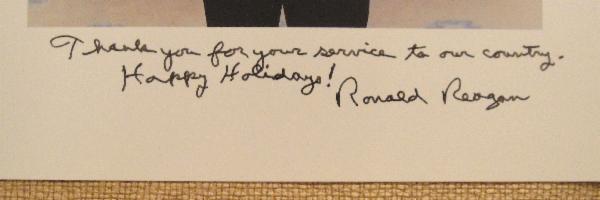 Thank you for your service to our country.
Happy Holidays!
Ronald Reagan